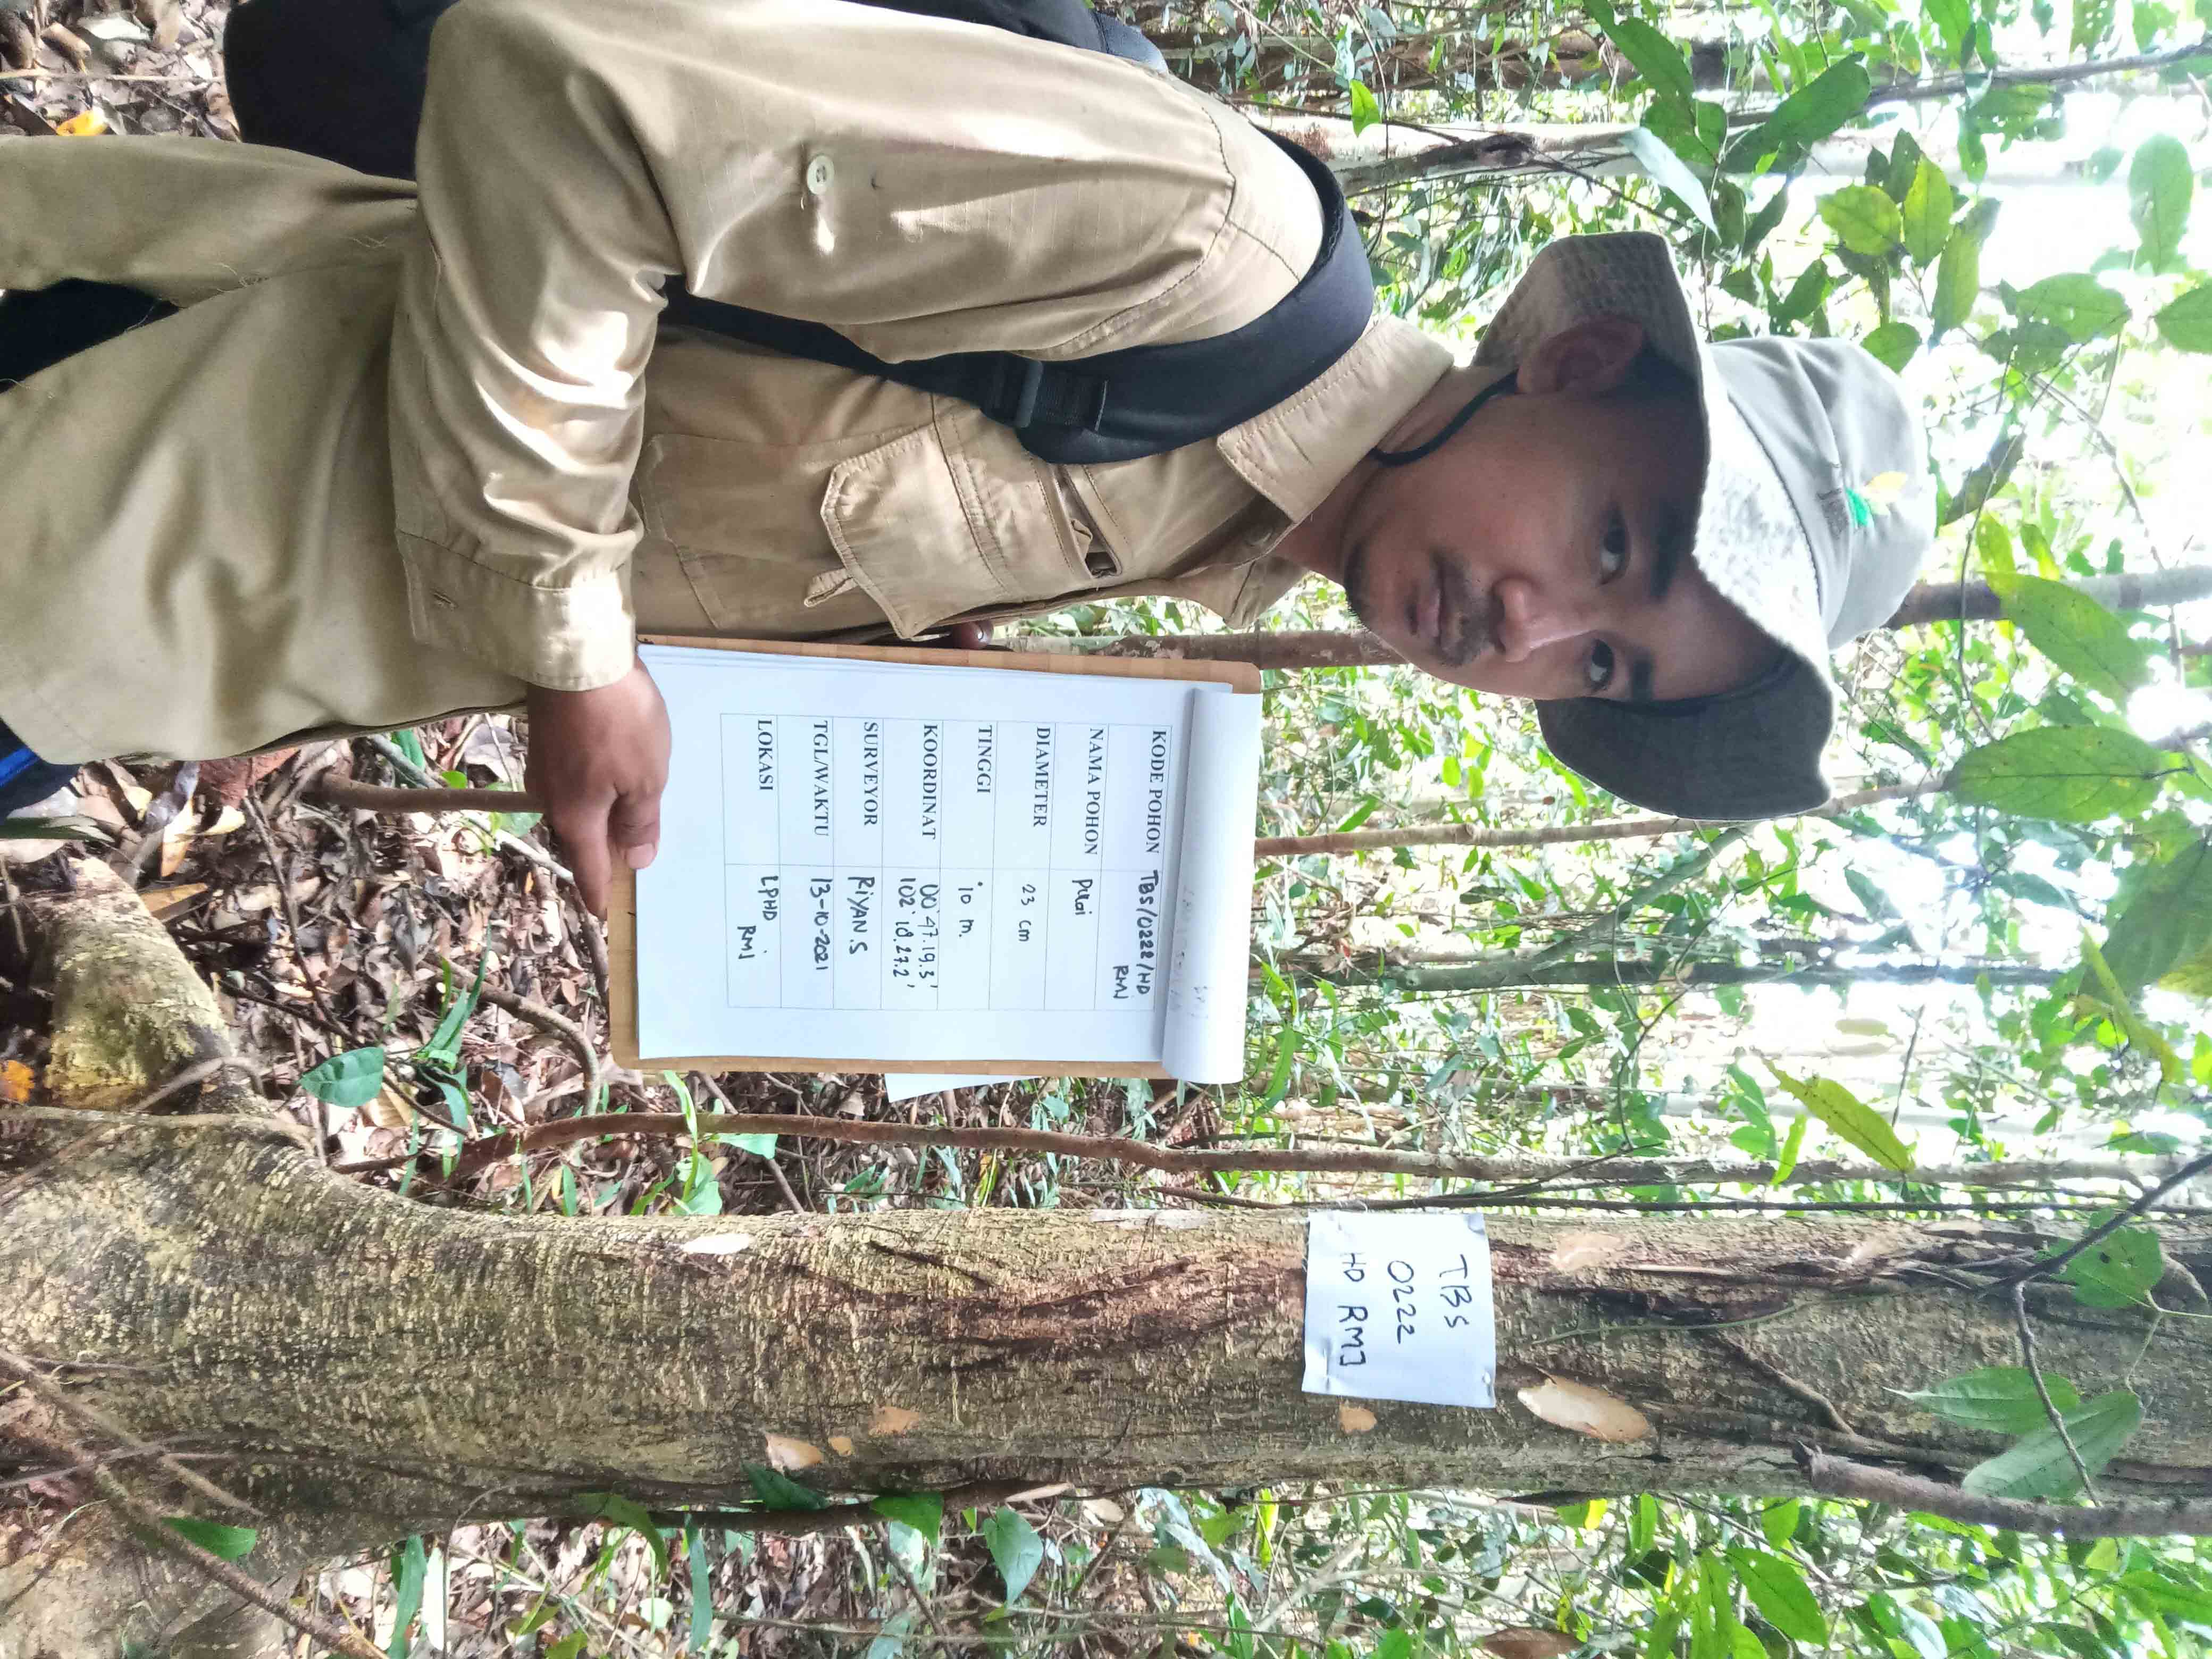 KODE POHON TBS/0222/HD
RMJ
NAMA POHON Pulai
DIAMETER 23 cm
TINGGI 10 m.
KOORDINAT 00° 47.19.3'
102° 10.27.2'
SURVEYOR RiYAN.S
TGL/WAKTU 13-10-2021
LOKASI LPHD
RMJ
TBS
0222
HD RMJ